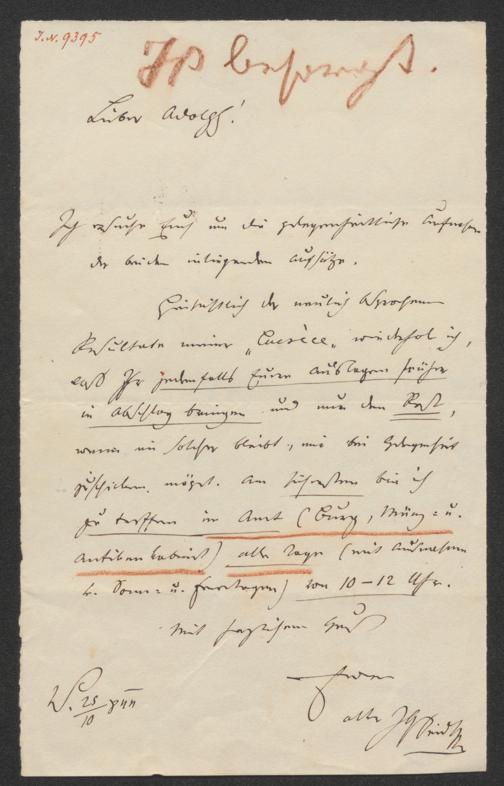 I.N. 9395
Ist besorgt.
Lieber Adolph!
Ich ersuche Euch um die gelegenheitliche Aufnahme
der beiden inliegenden Aufsätze.
Hinsichtlich der neulich besprochenen
Resultate meiner „ “ wiederhol ich,
daß Ihr jedenfalls Eure Auslagen früher
in Abschlag bringen und nur den Rest,
wenn ein solcher bleibt, mir bei Gelegenheit
zuschicken möget. Am sichersten bin ich
zu treffen im Amt (Burg, Münz= u.
Antikenkabinet) alle Tage (mit Ausnahme
d. Sonn= u. Feiertage) von 10–12 Uhr.
Mit herzlichem Gruß
Euer
alter JGSeidl
W. 25/10